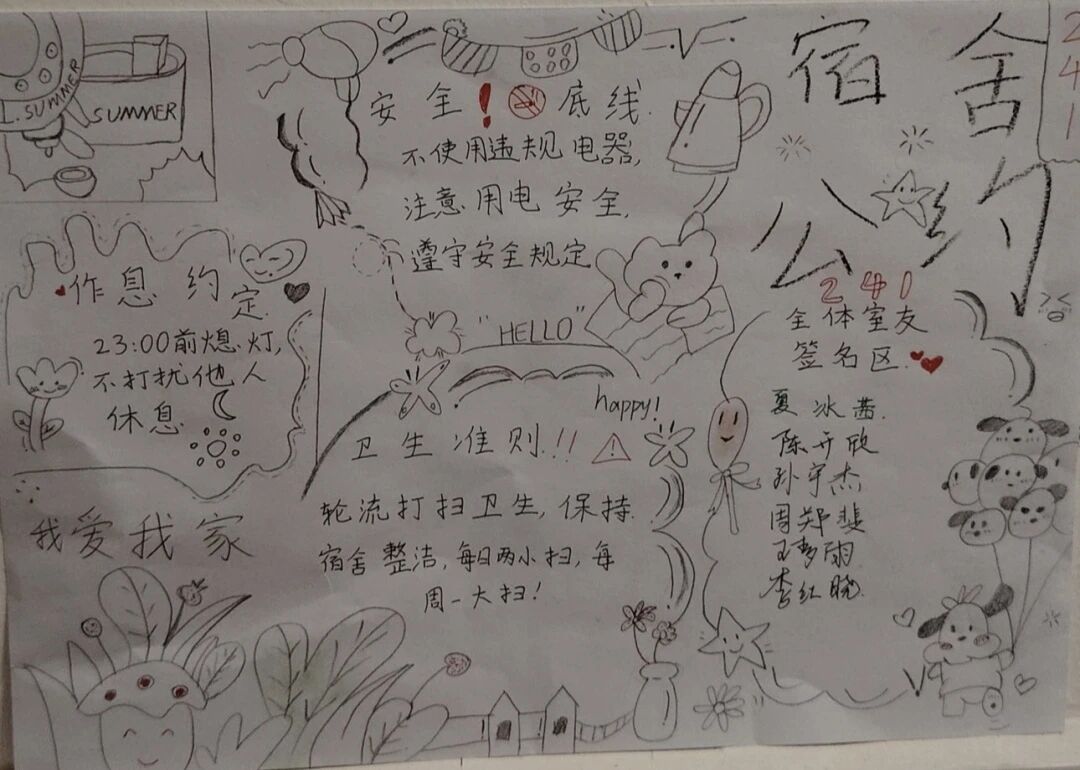 宿舍
公约
241
L.SUMMER
SUMMER
安全❗🚭底线.
不使用违规电器,
注意用电安全,
遵守安全规定
"HELLO"
作息约定
23:00前熄灯,
不打扰他人
休息
happy!
卫生准则!!
轮流打扫卫生,保持
宿舍整洁,每日两小扫,每
周一大扫!
我爱我家
240
全体室友
签名区.
夏冰茜.
陈开欣
孙宇杰
周郑斐
李红晓.